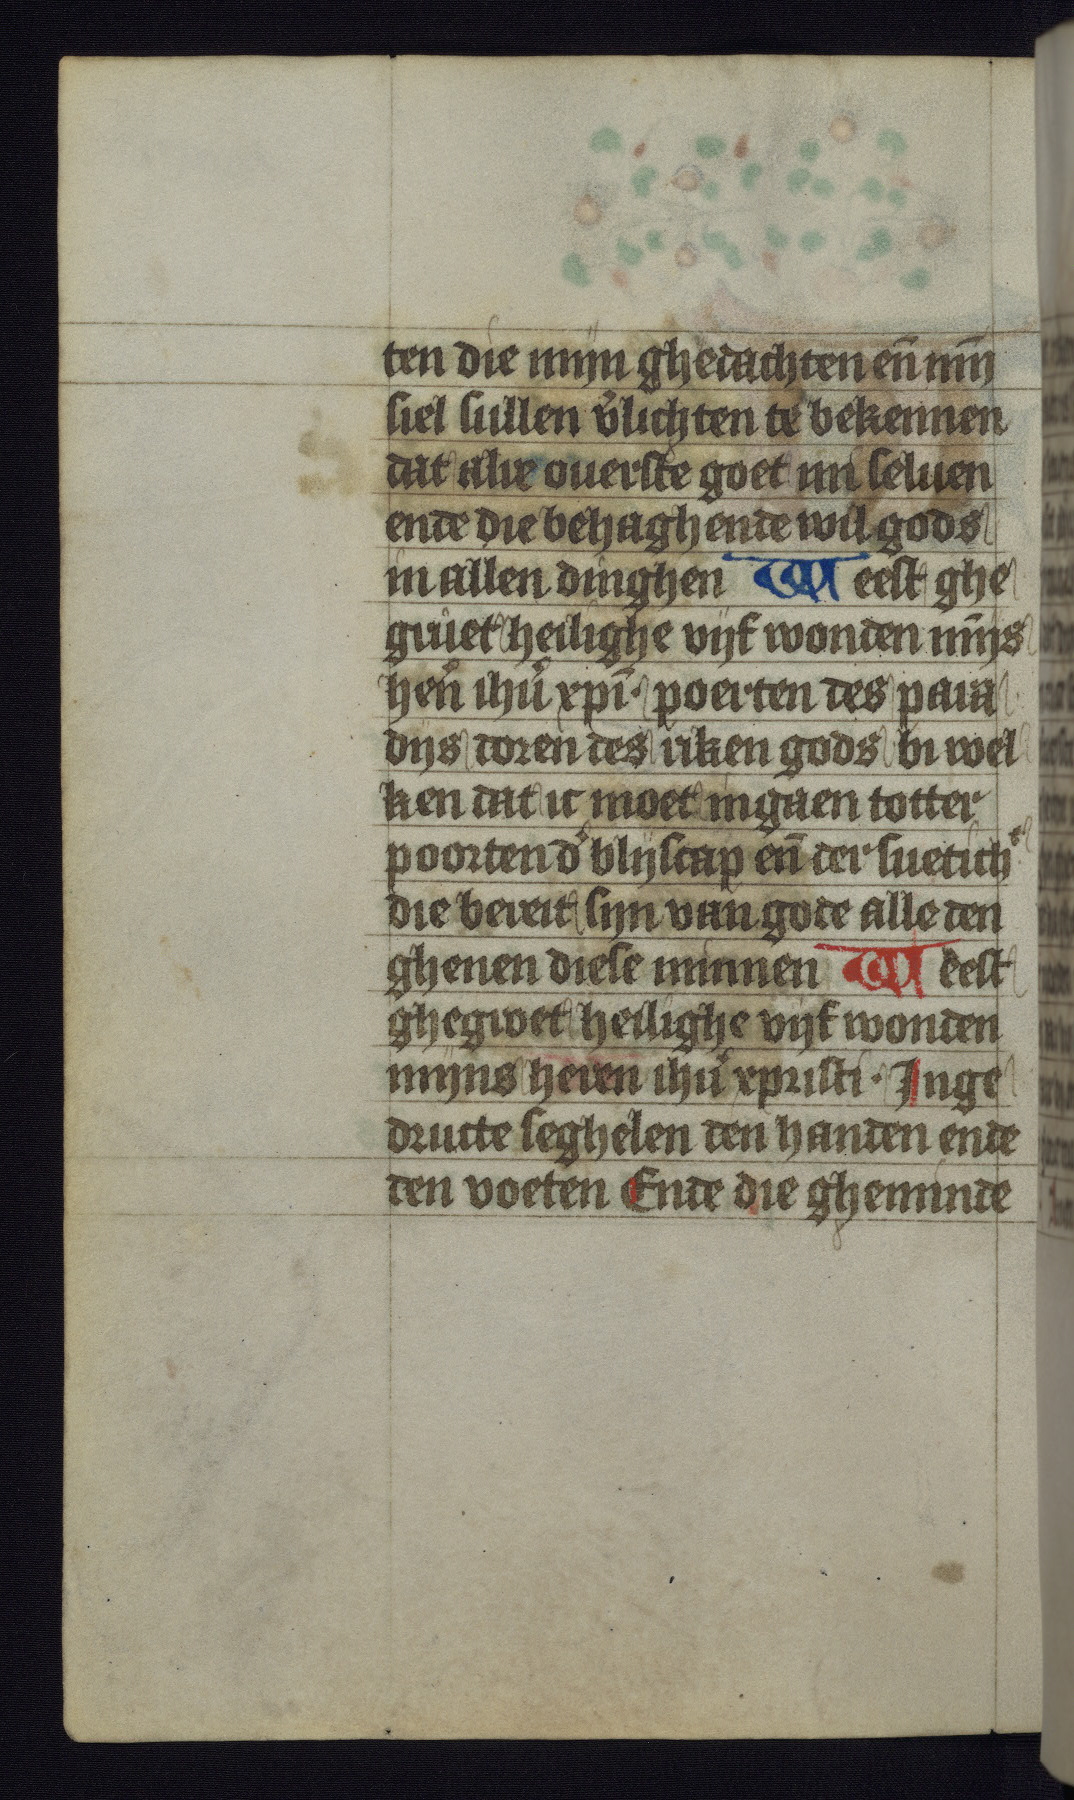 ten die mijn ghedachten en̄ mȳ
siel sullen v̓lichten te bekennen
dat alre ouerste goet im seluen
ende die behaghende wil gods
in allen dinghen Weest ghe
gruet heilighe vijf wonden mijs
hen̓ ihu̓ xpī· poerten des para
dijs doren des riken gods bi wel
ken dat ic moet ingaen totter
poorten d̓ blijscap en̄ der suetich^t
die bereit sijn van gode alle den
ghenen diese minnen Weest
ghegroet heilighe vijf wonden
mijns heren ihu̓ xpristi· Inge
dructe seghelen den handen ende
den voeten Ende die gheminde